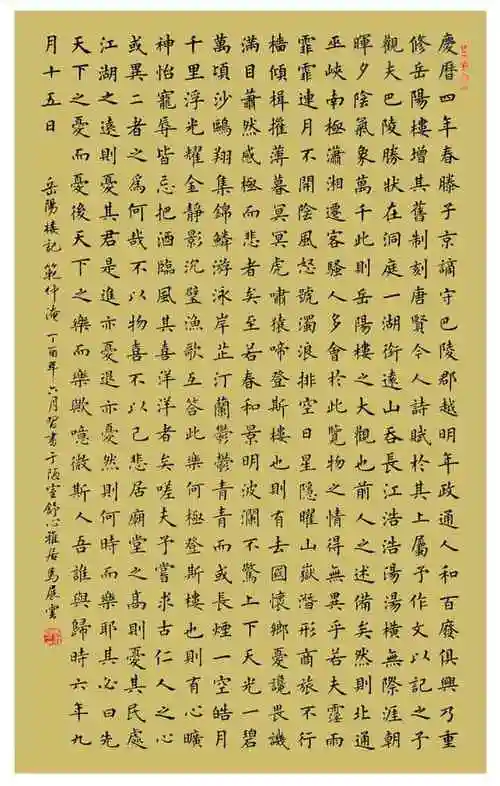 慶曆四年春滕子京謫守巴陵郡越明年政通人和百廢俱興乃重
修岳陽樓增其舊制刻唐賢今人詩賦於其上屬予作文以記之予
觀夫巴陵勝狀在洞庭一湖銜遠山吞長江浩浩湯湯橫無際涯朝
暉夕陰氣象萬千此則岳陽樓之大觀也前人之述備矣然則北通
巫峽南極瀟湘遷客騷人多會於此覽物之情得無異乎若夫霪雨
霏霏連月不開陰風怒號濁浪排空日星隱曜山嶽潛形商旅不行
檣傾楫摧薄暮冥冥虎嘯猿啼登斯樓也則有去國懷鄉憂讒畏譏
滿目蕭然感極而悲者矣至若春和景明波瀾不驚上下天光一碧
萬頃沙鷗翔集錦鱗游泳岸芷汀蘭鬱鬱青青而或長煙一空皓月
千里浮光耀金靜影沉璧漁歌互答此樂何極登斯樓也則有心曠
神怡寵辱皆忘把酒臨風其喜洋洋者矣嗟夫予嘗求古仁人之心
或異二者之為何哉不以物喜不以己悲居廟堂之高則憂其民處
江湖之遠則憂其君是進亦憂退亦憂然則何時而樂耶其必曰先
天下之憂而憂後天下之樂而樂歟噫微斯人吾誰與歸時六年九
月十五日
岳陽樓記 範仲淹 丁酉年六月習書于陋室舒心雅居馬展雲